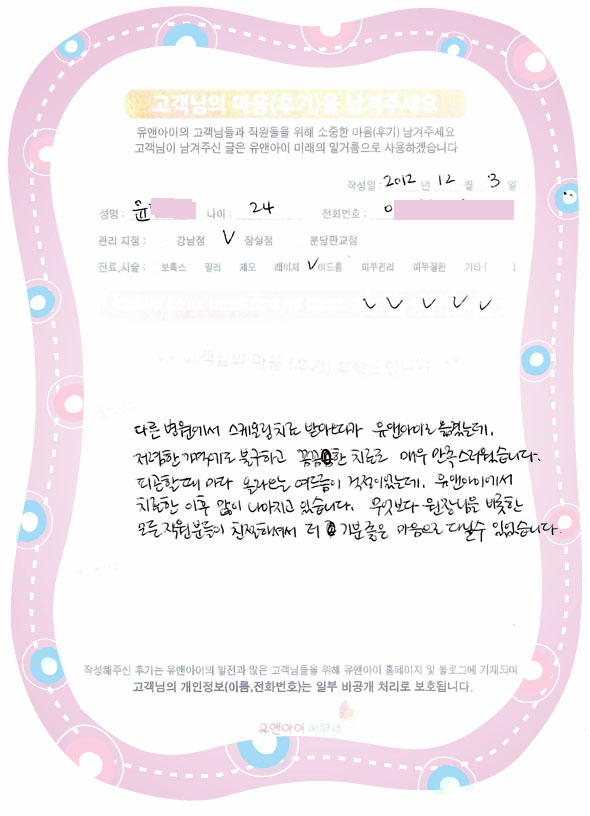 고객님의 마음(후기)을 남겨주세요
유앤아이의 고객님들과 직원들을 위해 소중한 마음(후기) 남겨주세요
고객님이 남겨주신 글은 유앤아이 미래의 밑거름으로 사용하겠습니다
작성일 : 2012 년 12 월 3 일
성명 : 윤 나이 : 24 전화번호 : 0
관리 지점 : 강남점 ✓ 잠실점 분당판교점
진료,시술 : 보톡스 필러 제모 레이저 ✓ 여드름 피부관리 피부질환 기타 (
고객님의 마음 (후기) 부탁드립니다
다른 병원에서 스케일링치료 받아보다가 유앤아이로 옮겼는데,
저렴한 가격에도 불구하고 꼼꼼한 치료로 매우 만족스러웠습니다.
피곤할때 마다 올라오는 여드름이 걱정이었는데, 유앤아이에서
치료한 이후 많이 나아지고 있습니다. 무엇보다 원장님을 비롯한
모든 직원분들이 친절하셔서 더 기분좋은 마음으로 다닐수 있었습니다.
작성해주신 후기는 유앤아이의 발전과 많은 고객님들을 위해 유앤아이 홈페이지 및 블로그에 기재되며
고객님의 개인정보(이름,전화번호)는 일부 비공개 처리로 보호됩니다.
유앤아이 피부과